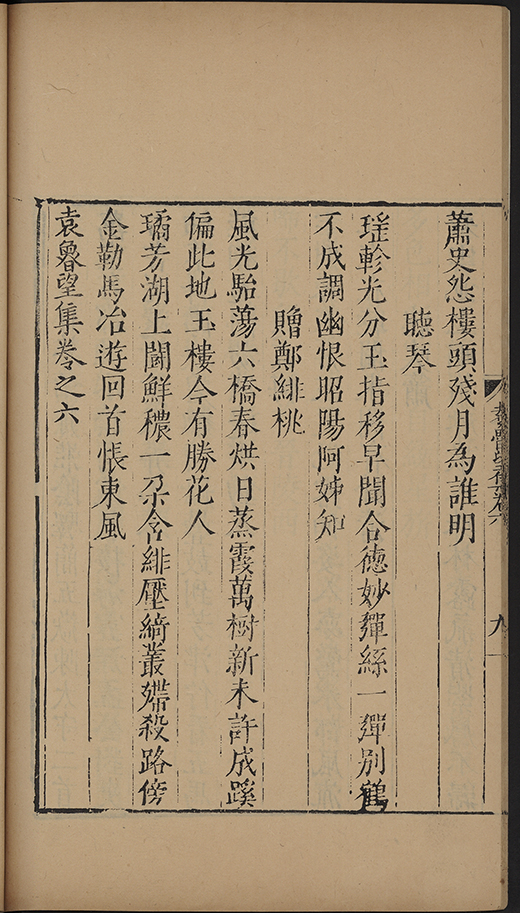 蕭史怨樓頭殘月為誰明
聽琴
瑤軫光分玉指移早聞合德妙彈絲一彈別鶴
不成調幽恨昭陽阿姊知
贈鄭緋桃
風光駘蕩六橋春烘日蒸霞萬樹新未許成蹊
偏此地玉樓今有勝花人
璚芳湖上鬭鮮穠一朶含緋壓綺叢殢殺路傍
金勒馬冶遊回首悵東風
袁魯望集卷之六